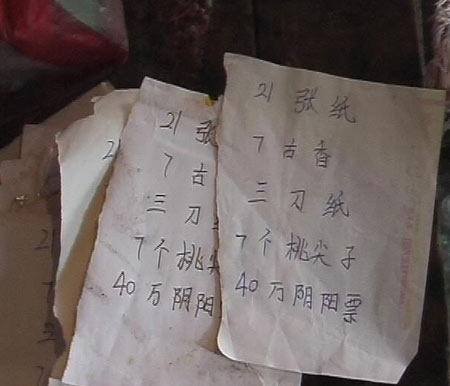 21 张纸
7 古香
三刀纸
7个桃尖子
40万阴阳票
21 张
7 古
三刀
7个桃尖
40万阴阳
2
2